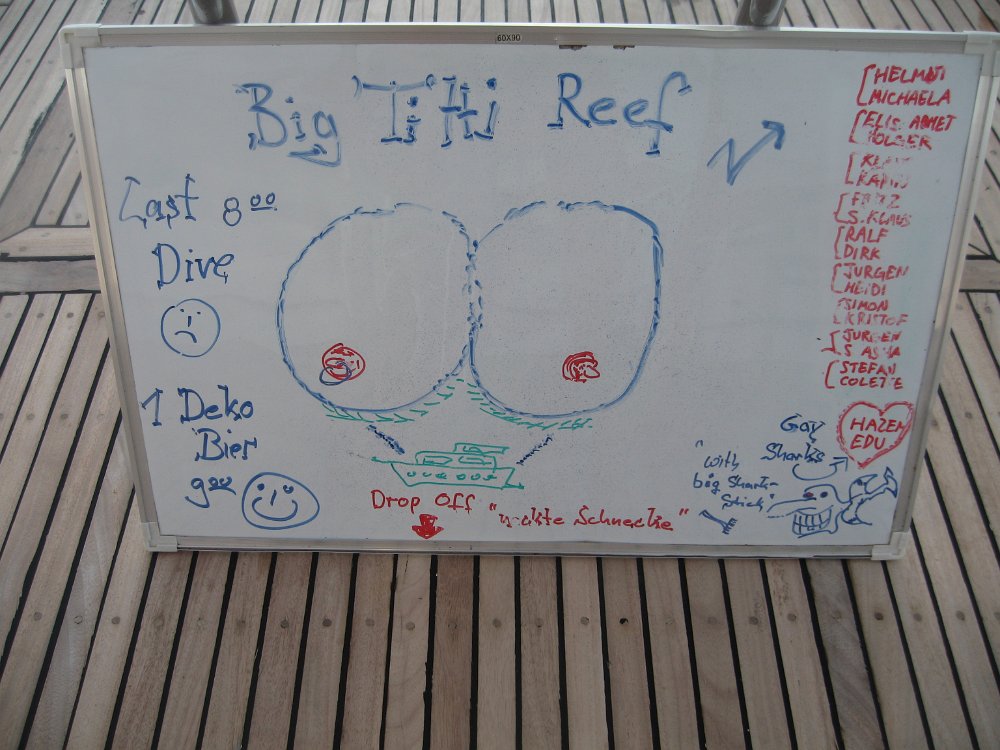 60X90
Big Titti Reef
N
Last 8 00
Dive
1 Deko
Bier
9 00
Drop Off "nackte Schnecke"
HELMUT
MICHAELA
ELIS. AHMET
HOLGER
KARIN
FRITZ
S.KLAUS
RALF
DIRK
JURGEN
HEIDI
SIMON
KRISTOF
JURGEN
STEFAN
COLETTE
HAZEM
EDU
Gay
Sharks
"with
big Shark-
Stick"